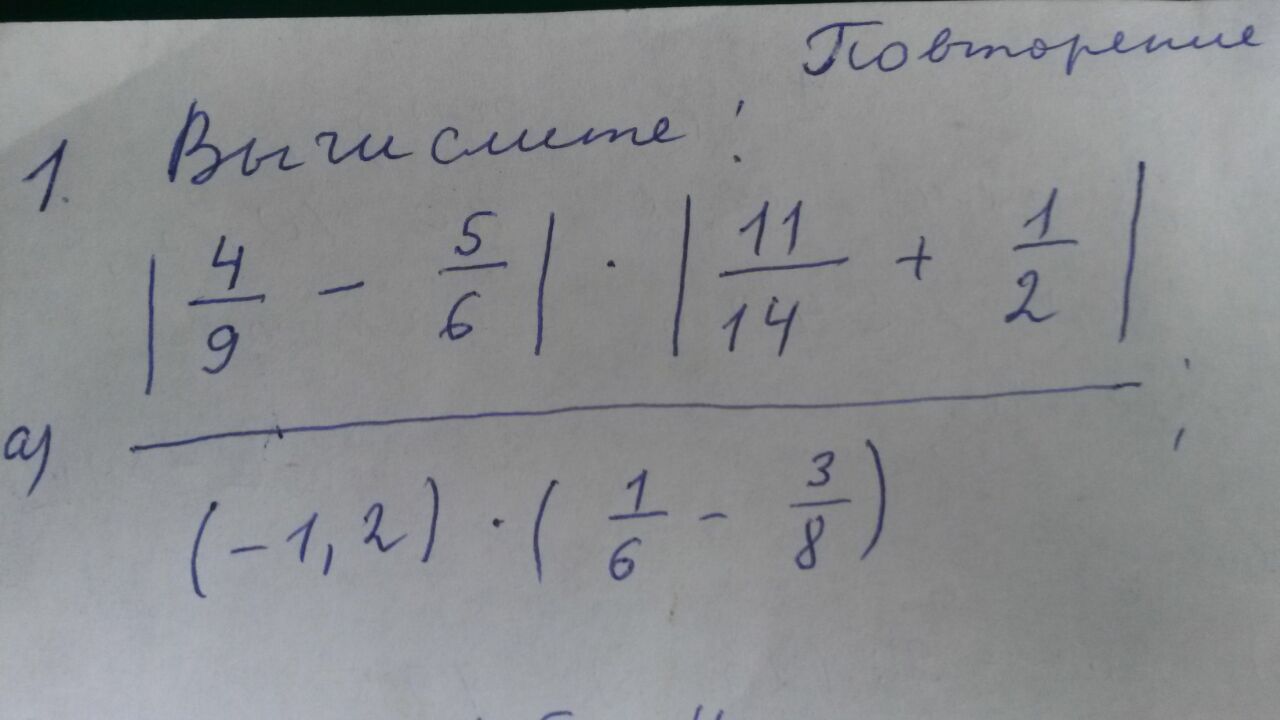 Повторение
1. Вычислите:
а) \frac{|\frac{4}{9} - \frac{5}{6}| \cdot |\frac{11}{14} + \frac{1}{2}|}{(-1,2) \cdot (\frac{1}{6} - \frac{3}{8})};